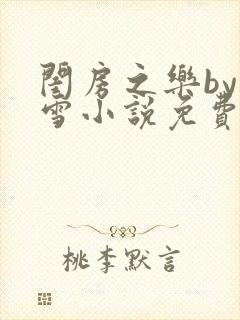 閨房之樂by
雪小説免費
桃李默言